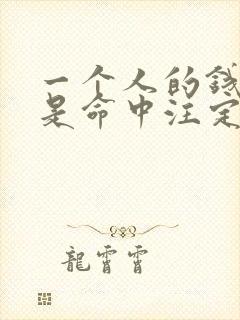 一个人的钱
是命中注定
龍霄霄